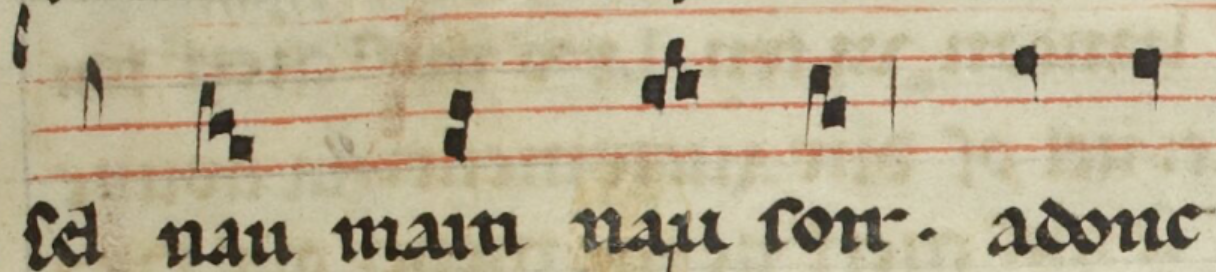 sel nau main nau soir. adonc